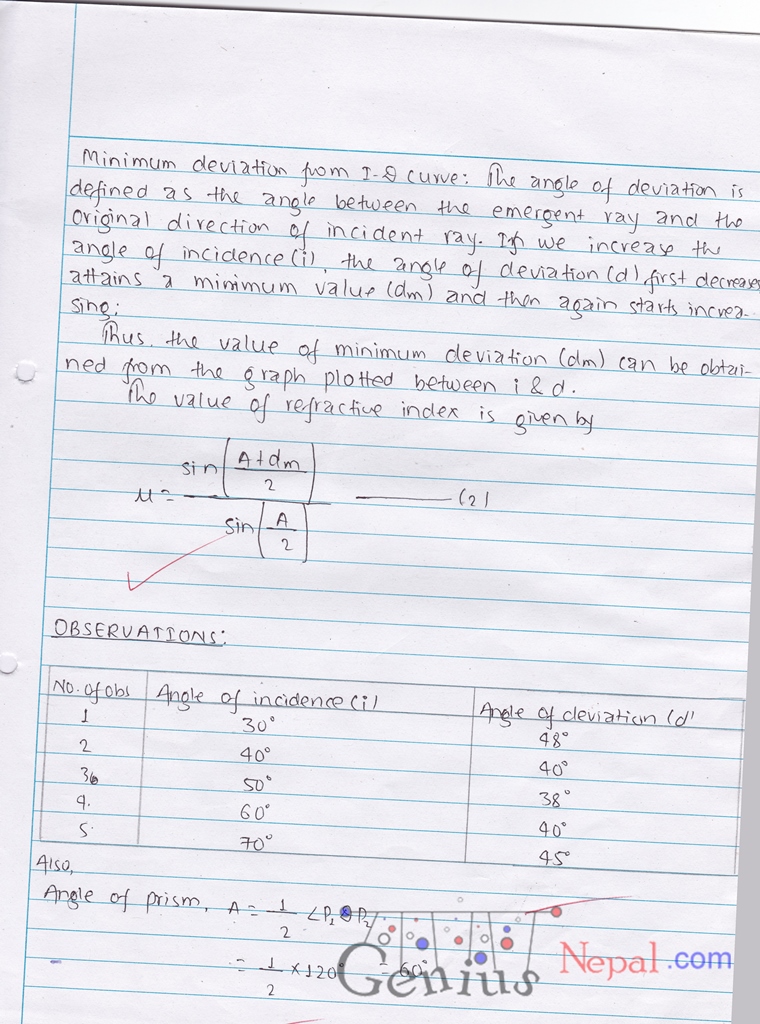 Minimum deviation from I-D curve: The angle of deviation is
defined as the angle between the emergent ray and the
original direction of incident ray. If we increase the
angle of incidence (i), the angle of deviation (d) first decreases
attains a minimum value (dm) and then again starts increa-
sing;
Thus, the value of minimum deviation (dm) can be obtai-
ned from the graph plotted between i & d.
The value of refractive index is given by
μ = sin((A+dm)/2) / sin(A/2) ——— (2)
OBSERVATIONS:
No. of obs Angle of incidence (i) Angle of deviation (d)
1 30° 48°
2 40° 40°
3 50° 38°
4. 60° 40°
5. 70° 45°
Also,
Angle of prism, A = 1/2 ∠P₁ P₂
= 1/2 × 120° = 60°
Genius Nepal.com